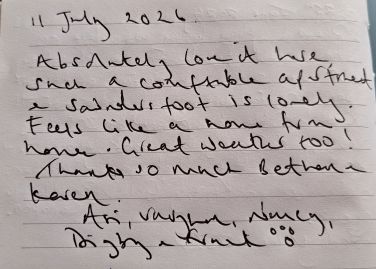 11 July 2026.
Absolutely love it here,
such a comfortable apartment
& Saundersfoot is lovely.
Feels like a home from
home. Great weather too!
Thanks so much Bethan &
Karen.
Ari, Vaughan, Nancy,
Digby &